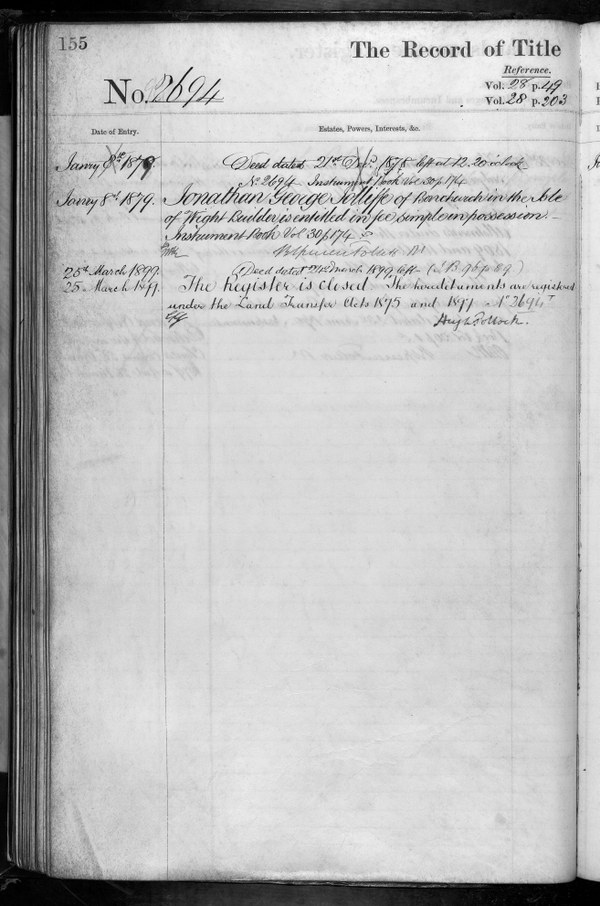 155
The Record of Title
Reference.
No. 2694
Vol. 28 p. 49
Vol. 28 p. 203
Date of Entry.
Estates, Powers, Interests, &c.
Janry 8th 1879
Deed dated 21st Decr. 1878 left at 12.20 o'clock
No 2694 Instrument Book Vol 30 p 174
Janry 8th 1879.
Jonathan George Jolliffe of Bonchurch in the Isle
of Wight Builder is entitled in fee simple in possession.
Instrument Book Vol 30 p 174
25th March 1899.
(Deed dated 24th March 1899 left
25 March 1899.
The Register is closed The hereditaments are registered
under the Land Transfer Acts 1875 and 1897 No 2694
Hugh Pollock.